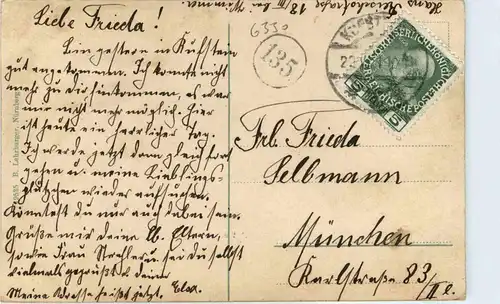 Liebe Frieda!
Bin gestern in Kufstein
gut angekommen. Ich konnte nicht
mehr zu Dir hinkommen, es war
mir nicht mehr möglich. Hier
ist heute ein herrlicher Tag.
Ich werde jetzt dann gleich fort
gehen u. meine Lieblings-
plätzchen wieder aufsuchen.
Könntest du nur auch dabei sein.
Grüße mir deine lb. Eltern,
sowie Frau sei du selbst
vielmals gegrüßt v. deiner
Elsa.
Meine Adresse heißt jetzt.
Hans
18
6330
135
KAISERLICHE KÖNIGLICHE
ÖSTERREICHISCHE POST
5 5
Frl. Frieda
Sellmann
München
Karlstraße 83/II r.
B. Lehrburger, Nürnberg